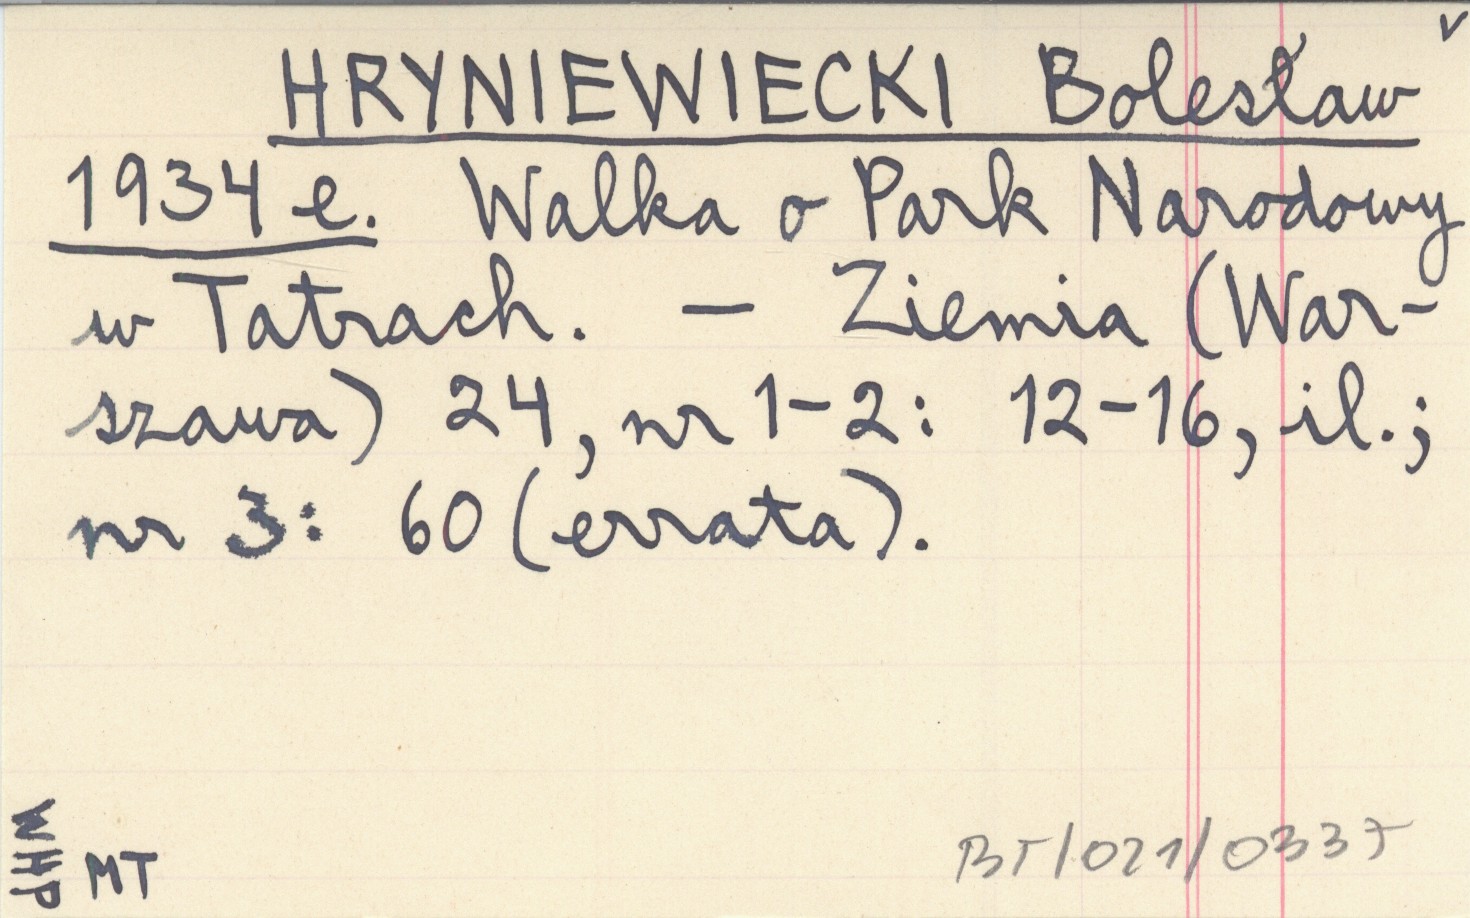 v
HRYNIEWIECKI Bolesław
1934 e. Walka o Park Narodowy
w Tatrach. — Ziemia (War-
szawa) 24, nr 1-2: 12-16, il.;
nr 3: 60 (errata).
WHP
MT
BT/021/0335